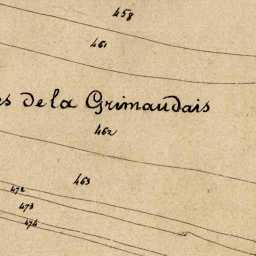 458
461
es de la Grimaudais
462
463
472
473
474